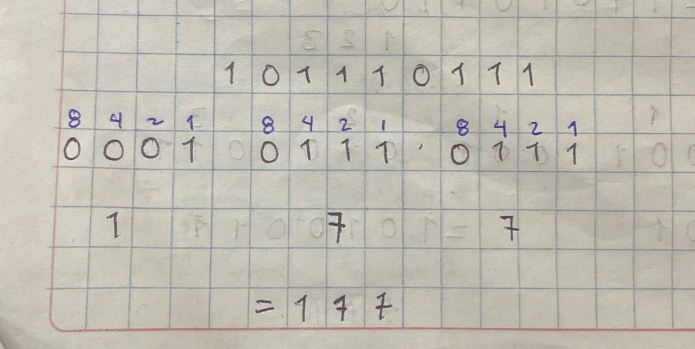 1 0 1 1 1 0 1 1 1
8 4 2 1 8 4 2 1 8 4 2 1
0 0 0 1 0 1 1 1 . 0 1 1 1
1 7 7
= 1 7 7